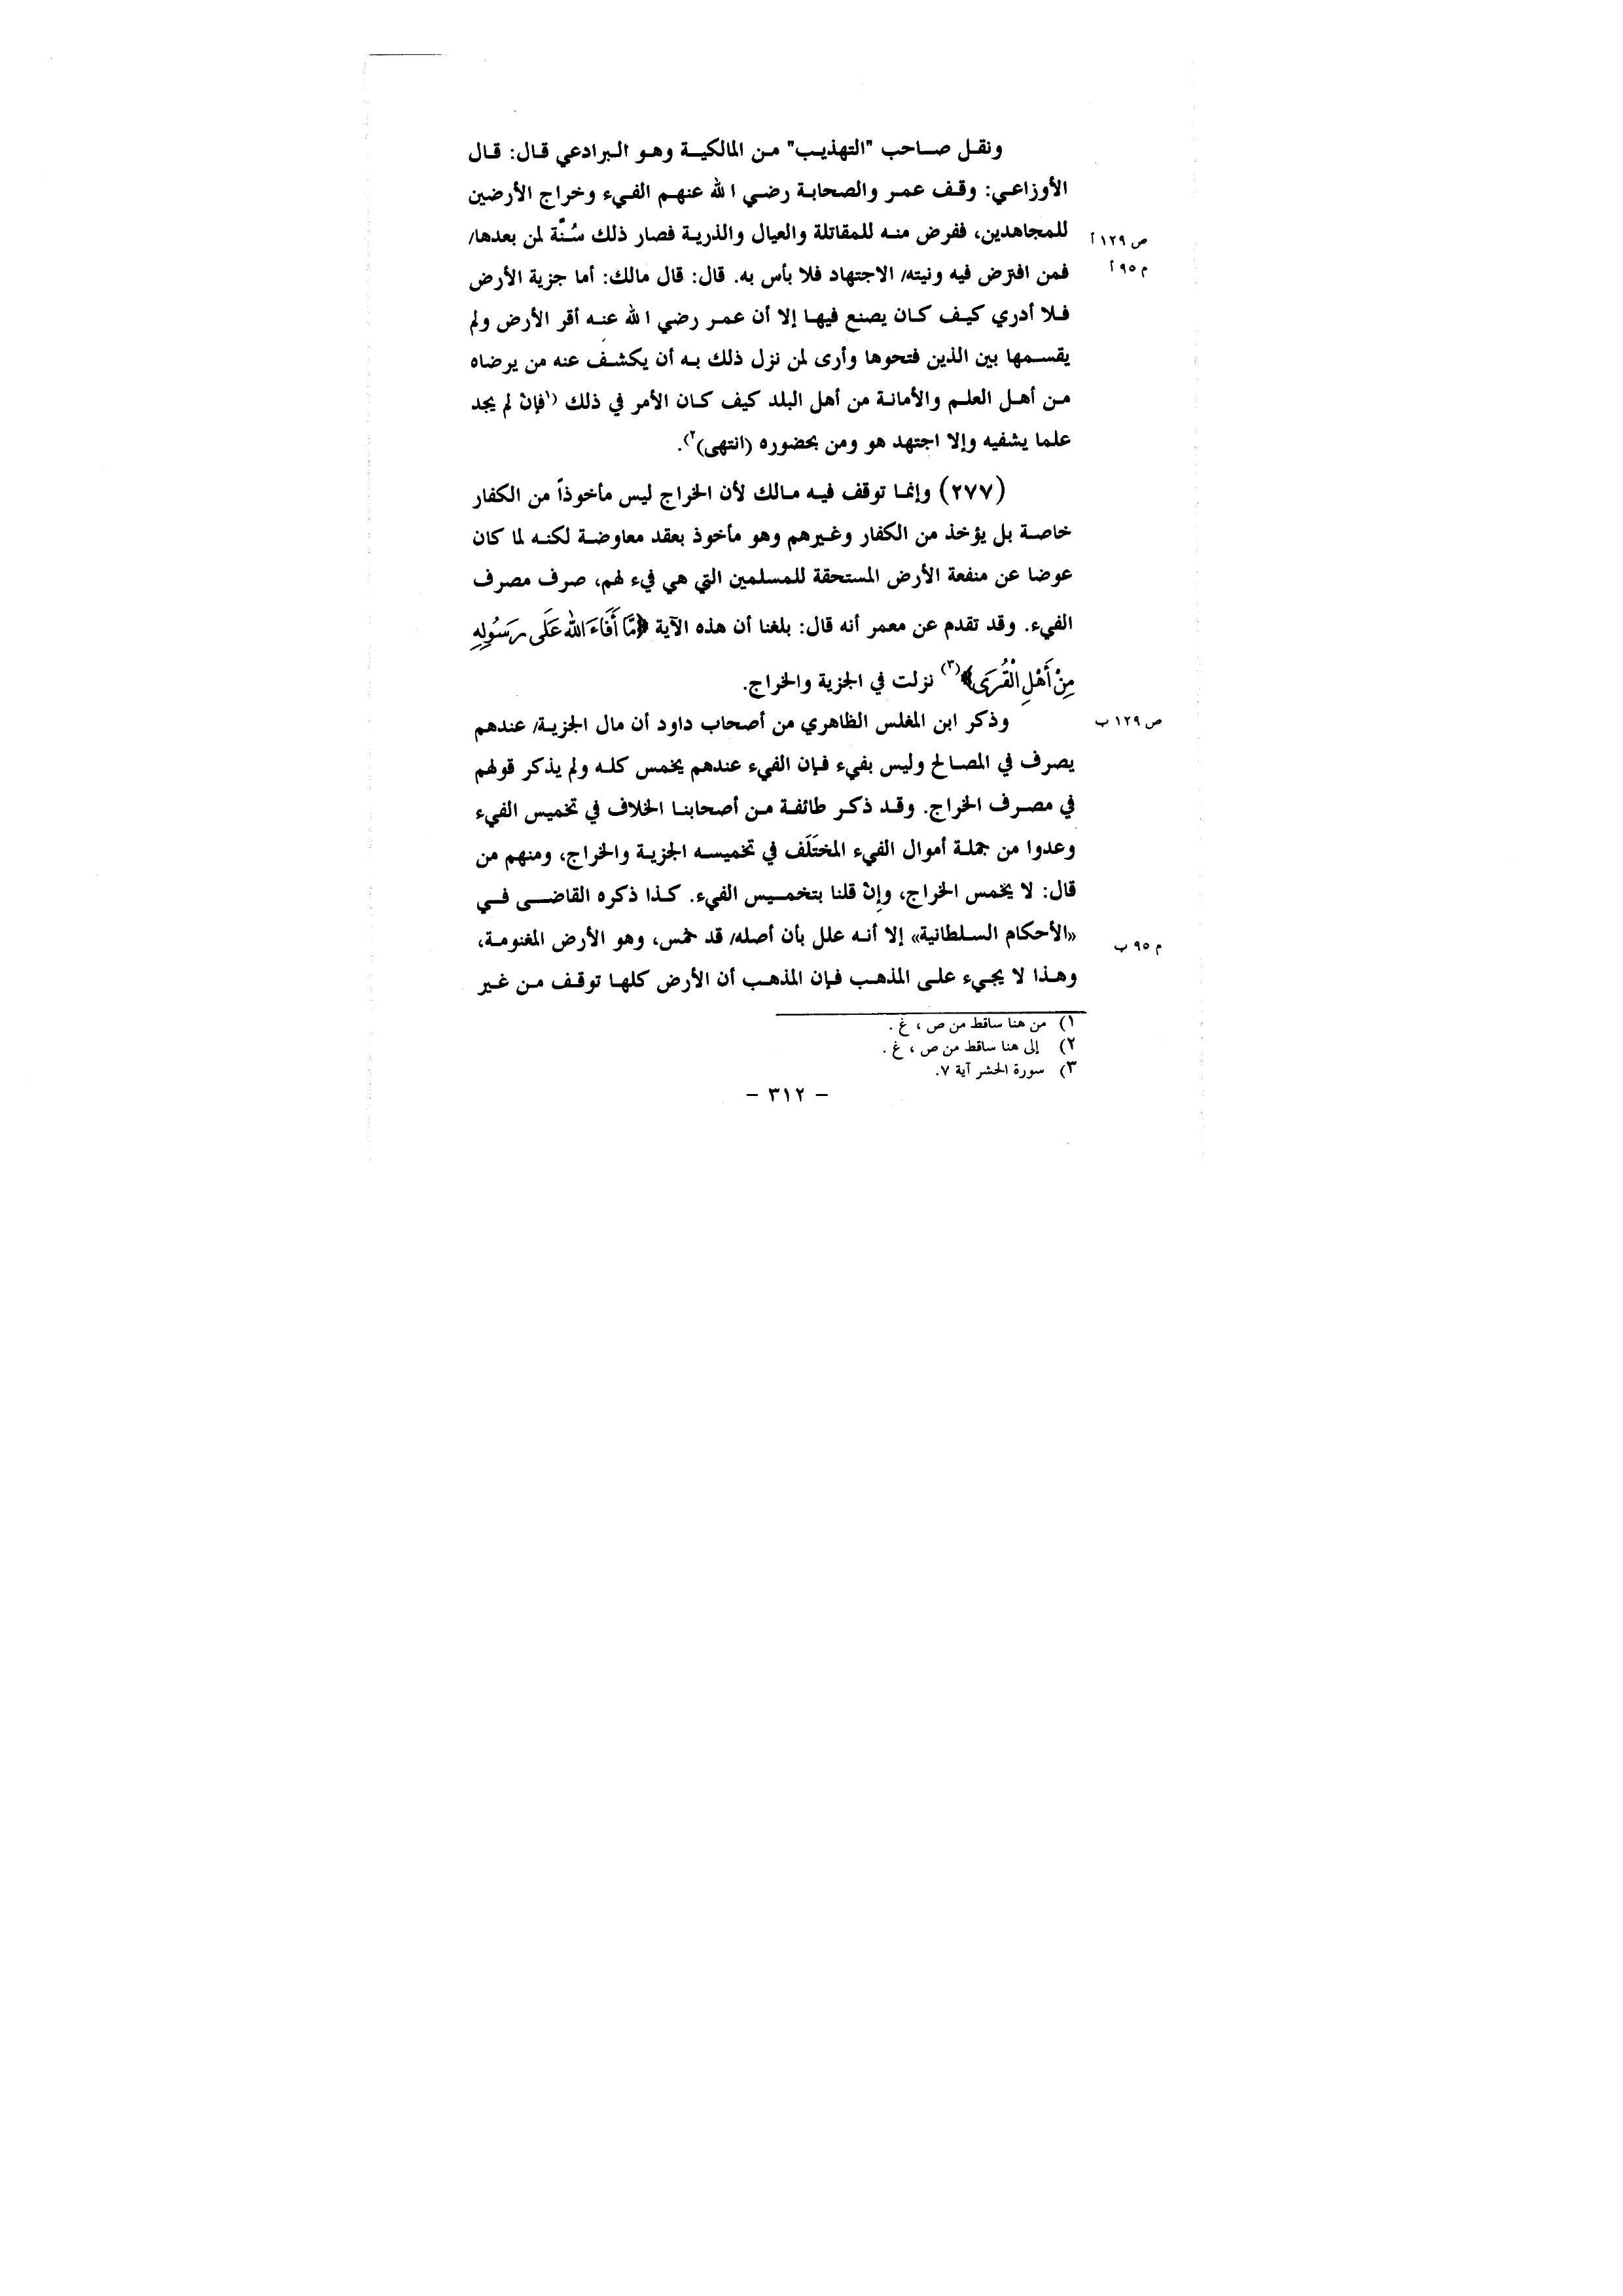 ونقل صاحب "التهذيب" من المالكية وهو البرادعي قال: قال
الأوزاعي: وقف عمر والصحابة رضي الله عنهم الفيء وخراج الأرضين
للمجاهدين، ففرض منه للمقاتلة والعيال والذرية فصار ذلك سُنّة لمن بعدها/
ص ١٢٩ أ
فمن افترض فيه ونيته/ الاجتهاد فلا بأس به. قال: قال مالك: أما جزية الأرض
م ٩٥ أ
فلا أدري كيف كان يصنع فيها إلا أن عمر رضي الله عنه أقر الأرض ولم
يقسمها بين الذين فتحوها وأرى لمن نزل ذلك به أن يكشف عنه من يرضاه
من أهل العلم والأمانة من أهل البلد كيف كان الأمر في ذلك (١فإن لم يجد
علما يشفيه وإلا اجتهد هو ومن بحضوره (انتهى)٢).
(٢٧٧) وإنما توقف فيه مالك لأن الخراج ليس مأخوذاً من الكفار
خاصة بل يؤخذ من الكفار وغيرهم وهو مأخوذ بعقد معاوضة لكنه لما كان
عوضا عن منفعة الأرض المستحقة للمسلمين التي هي فيء لهم، صرف مصرف
الفيء. وقد تقدم عن معمر أنه قال: بلغنا أن هذه الآية ﴿مَّا أَفَاءَ اللهُ عَلَى رَسُولِهِ
مِنْ أَهْلِ الْقُرَى﴾(٣) نزلت في الجزية والخراج.
وذكر ابن المغلس الظاهري من أصحاب داود أن مال الجزية/ عندهم
ص ١٢٩ ب
يصرف في المصالح وليس بفيء فإن الفيء عندهم يخمس كله ولم يذكر قولهم
في مصرف الخراج. وقد ذكر طائفة من أصحابنا الخلاف في تخميس الفيء
وعدوا من جملة أموال الفيء المختَلَف في تخميسه الجزية والخراج، ومنهم من
قال: لا يخمس الخراج، وإن قلنا بتخميس الفيء. كذا ذكره القاضى في
«الأحكام السلطانية» إلا أنه علل بأن أصله/ قد خمس، وهو الأرض المغنومة،
م ٩٥ ب
وهذا لا يجيء على المذهب فإن المذهب أن الأرض كلها توقف من غير
١) من هنا ساقط من ص ، غ .
٢) إلى هنا ساقط من ص ، غ .
٣) سورة الحشر آية ٧.
– ٣١٢ –